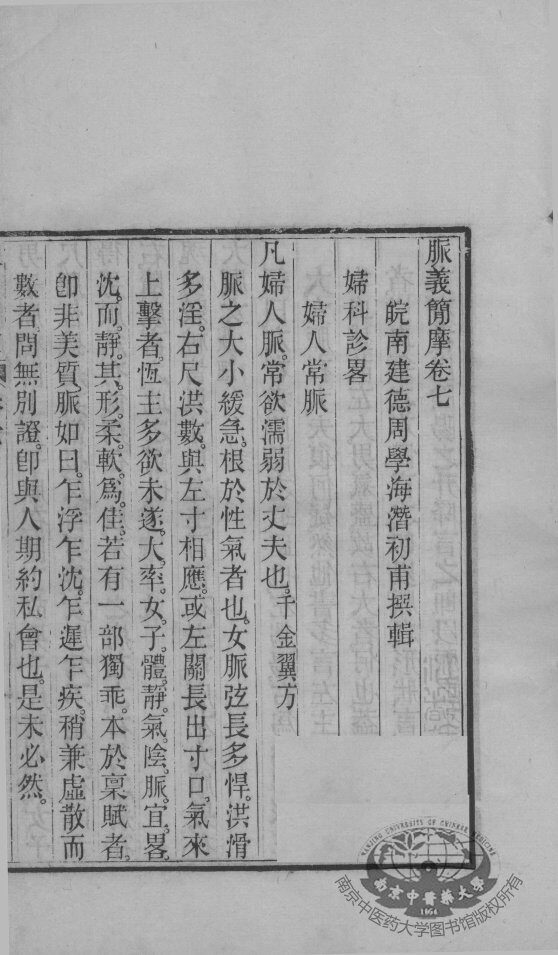 脈義簡摩卷七
皖南建德周學海潛初甫撰輯
婦科診畧
婦人常脈
凡婦人脈。常欲濡弱於丈夫也。千金翼方
脈之大小緩急。根於性氣者也。女脈弦長多悍。洪滑
多淫。右尺洪數。與左寸相應。或左關長出寸口。氣來
上擊者。恆主多欲未遂。大率。女子。體靜。氣陰。脈宜。畧
沈。而。靜。其。形。柔。軟。爲。佳。若有一部獨乖。本於稟賦者。
卽非美質。脈如曰。乍浮乍沈。乍遲乍疾。稍兼虛散而
數者。問無別證。卽與人期約私會也。是未必然。
NANJING UNIVERSITY OF CHINESE MEDICINE
南京中醫藥大學
1954
南京中医药大学图书馆版权所有